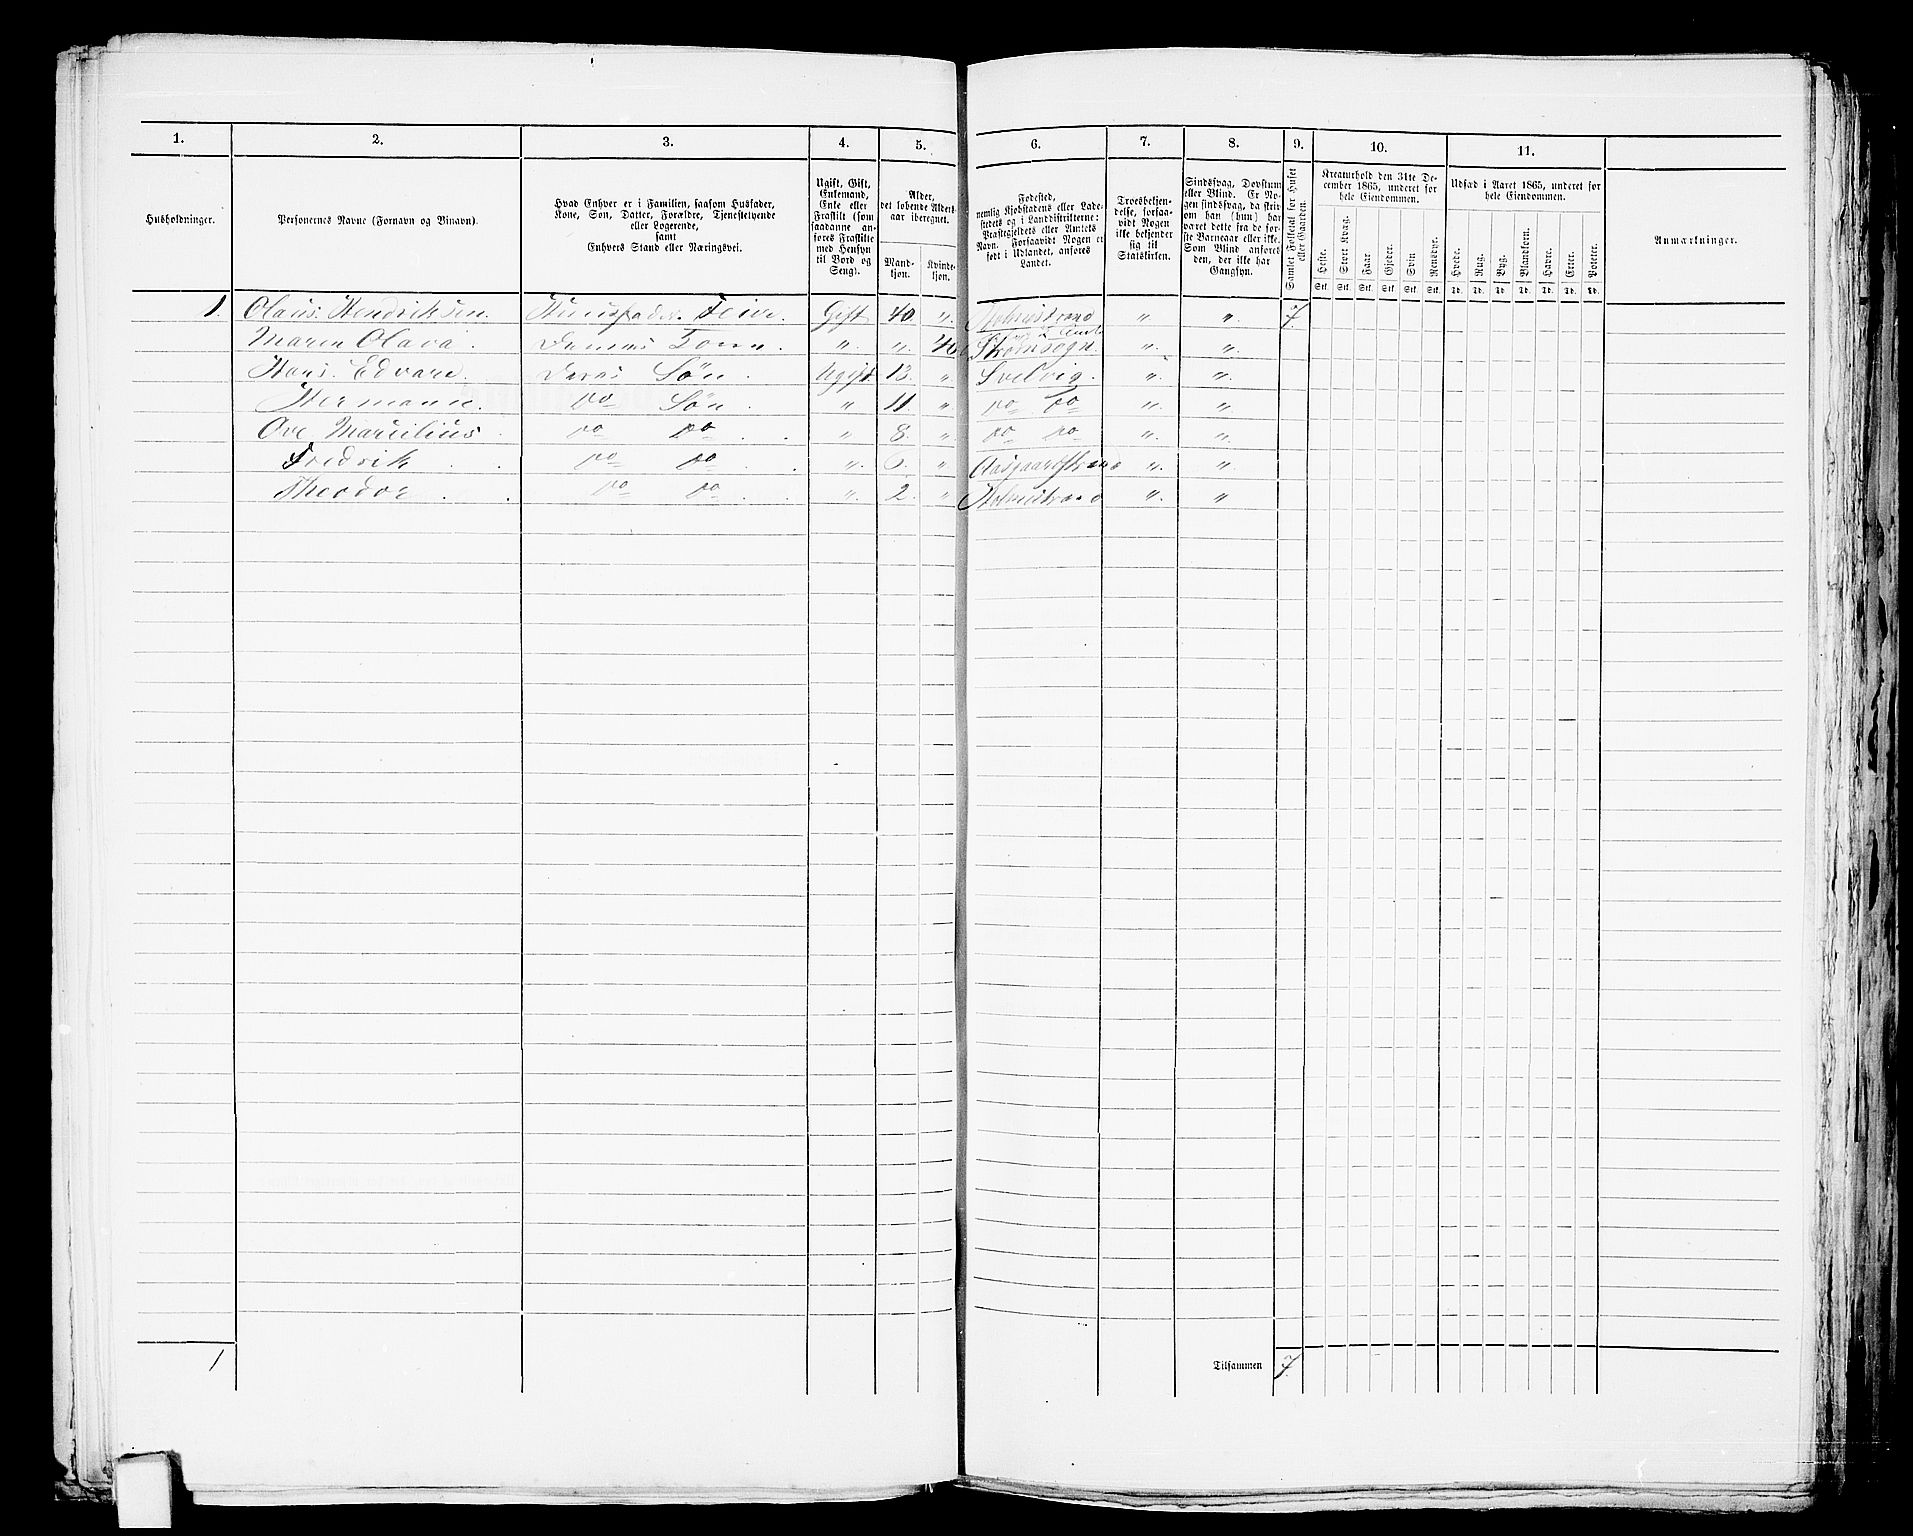 1. 2. 3. 4. 5. 6. 7. 8. 9. 10. 11.
Husholdninger.
Personernes Navne (Fornavn og Binavn).
Hvad Enhver er i Familien, saasom Husfader,
Kone, Søn, Datter, Forældre, Tjenestetyende
eller Logerende,
samt
Enhvers Stand eller Næringsvei.
Ugift, Gift,
Enkemand,
Enke eller
Fraskilt (som
saadanne an-
føres Fraskilte
med Hensyn
til Bord og
Seng).
Alder,
det løbende Alders-
aar iberegnet.
Mand-
kjøn.
Kvinde-
kjøn.
Fødested,
nemlig Kjøbstadens eller Lade-
stedets og i Landdistrikterne:
Præstegjeldets eller Amtets
Navn. Forsaavidt Nogen er
født i Udlandet, anføres
Landet.
Troesbekjen-
delse, forsaa-
vidt Nogen
ikke bekjender
sig til
Statskirken.
Sindssvag, Døvstum
eller Blind. Er No-
gen sindssvag, da skri-
ves om han (hun) har
været dette fra de før-
ste Barneaar eller ikke.
Som Blind anføres
den, der ikke har
Gangsyn.
Samlet Folketal for Huset
eller Gaarden.
Kreaturhold den 31te De-
cember 1865, underet for
hele Eiendommen.
Heste. Stort Kvæg. Faar Gjeder. Svin Rensdyr.
Stk. Stk. Stk. Stk. Stk. Stk.
Udsæd i Aaret 1865, underet for
hele Eiendommen.
Hvede. Rug. Byg. Blandkorn. Havre. Erter. Poteter.
Td. Td. Td. Td. Td. Td. Td.
Anmærkninger.
1. Olaus Hendriksen Huusfader Gift 40. „ Holmestrand „ „ 7.
Maren Olava. Dennes „ „ 40 Strømsogn. „ „
Hans Edvard. Deres Søn. Ugift. 13. „ Svelvig. „ „
Hermann. Do Søn „ 11. „ Do Do „ „
Ove Marcilius. Do Do „ 8. „ Do Do „ „
Fredrik Do Do „ 6. „ Aasgaardstrand „ „
Theodor Do Do „ 2. „ Holmestrand „ „
1 Tilsammen 7.